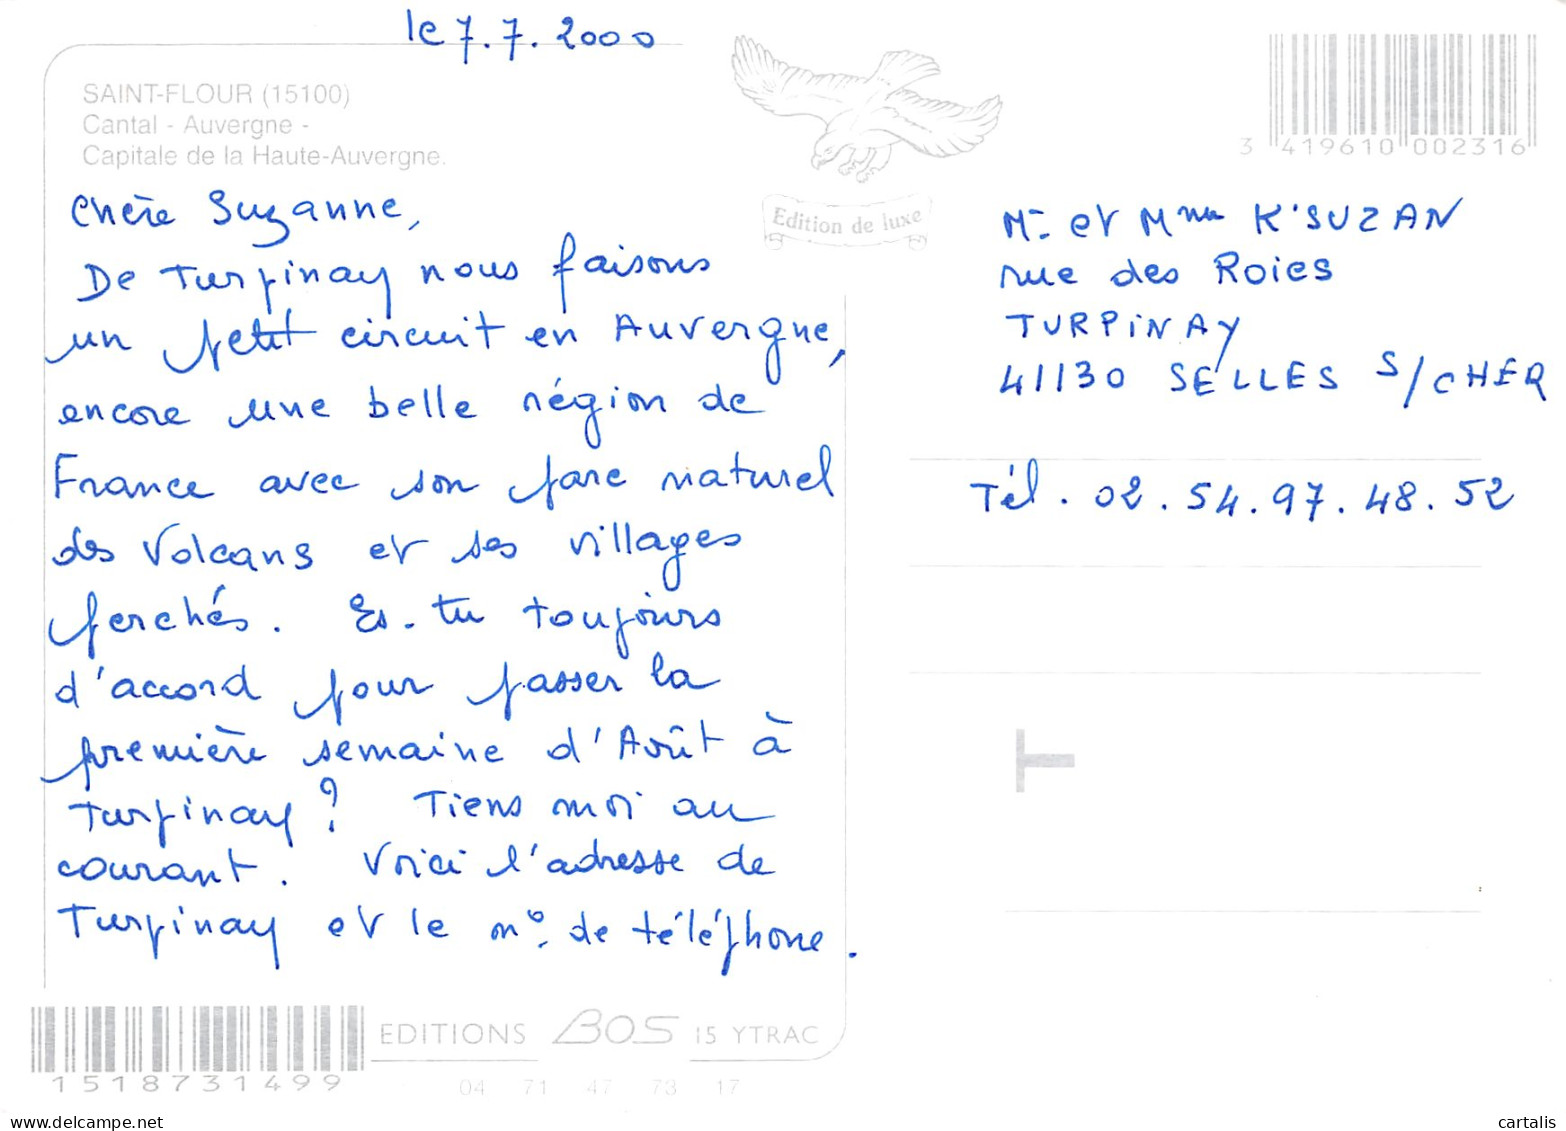 le 7.7.2000
SAINT-FLOUR (15100)
Cantal - Auvergne -
Capitale de la Haute-Auvergne.
Edition de luxe
3 419610 002316
Chère Suzanne,
De Turpinay nous faisons
un petit circuit en Auvergne,
encore une belle région de
France avec son parc naturel
des Volcans et ses villages
perchés. Es-tu toujours
d'accord pour passer la
première semaine d'Août à
Turpinay ? Tiens moi au
courant. Voici l'adresse de
Turpinay et le n°. de téléphone.
Mr et Mme K'SUZAN
rue des Roies
TURPINAY
41130 SELLES S/CHER
Tél. 02.54.97.48.52
EDITIONS BOS 15 YTRAC
1518731499
04 71 47 73 17
www.delcampe.net
cartalis